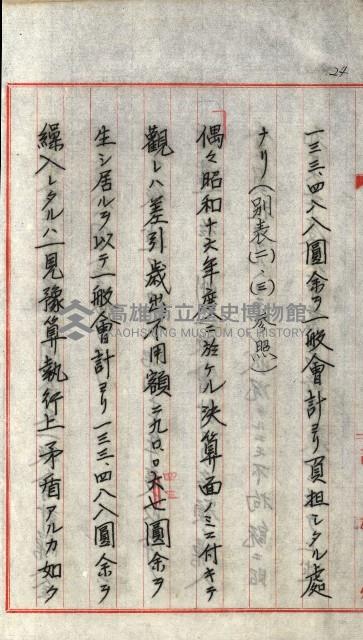 24
一三三、四八八圓余ヲ一般會計ヨリ負担シタル處
ナリ(別表(二)、(三)參照)
偶々昭和十六年度ニ於ケル決算面ノミニ付キテ
觀レハ差引歳出不用額二九〇、〇六七圓余ヲ
生シ居ルヲ以テ一般會計ヨリ一三三、四八八圓余ヲ
繰入レタルハ一見豫算執行上矛盾アルカ如ク
高雄市立歷史博物館
KAOHSIUNG MUSEUM OF HISTORY